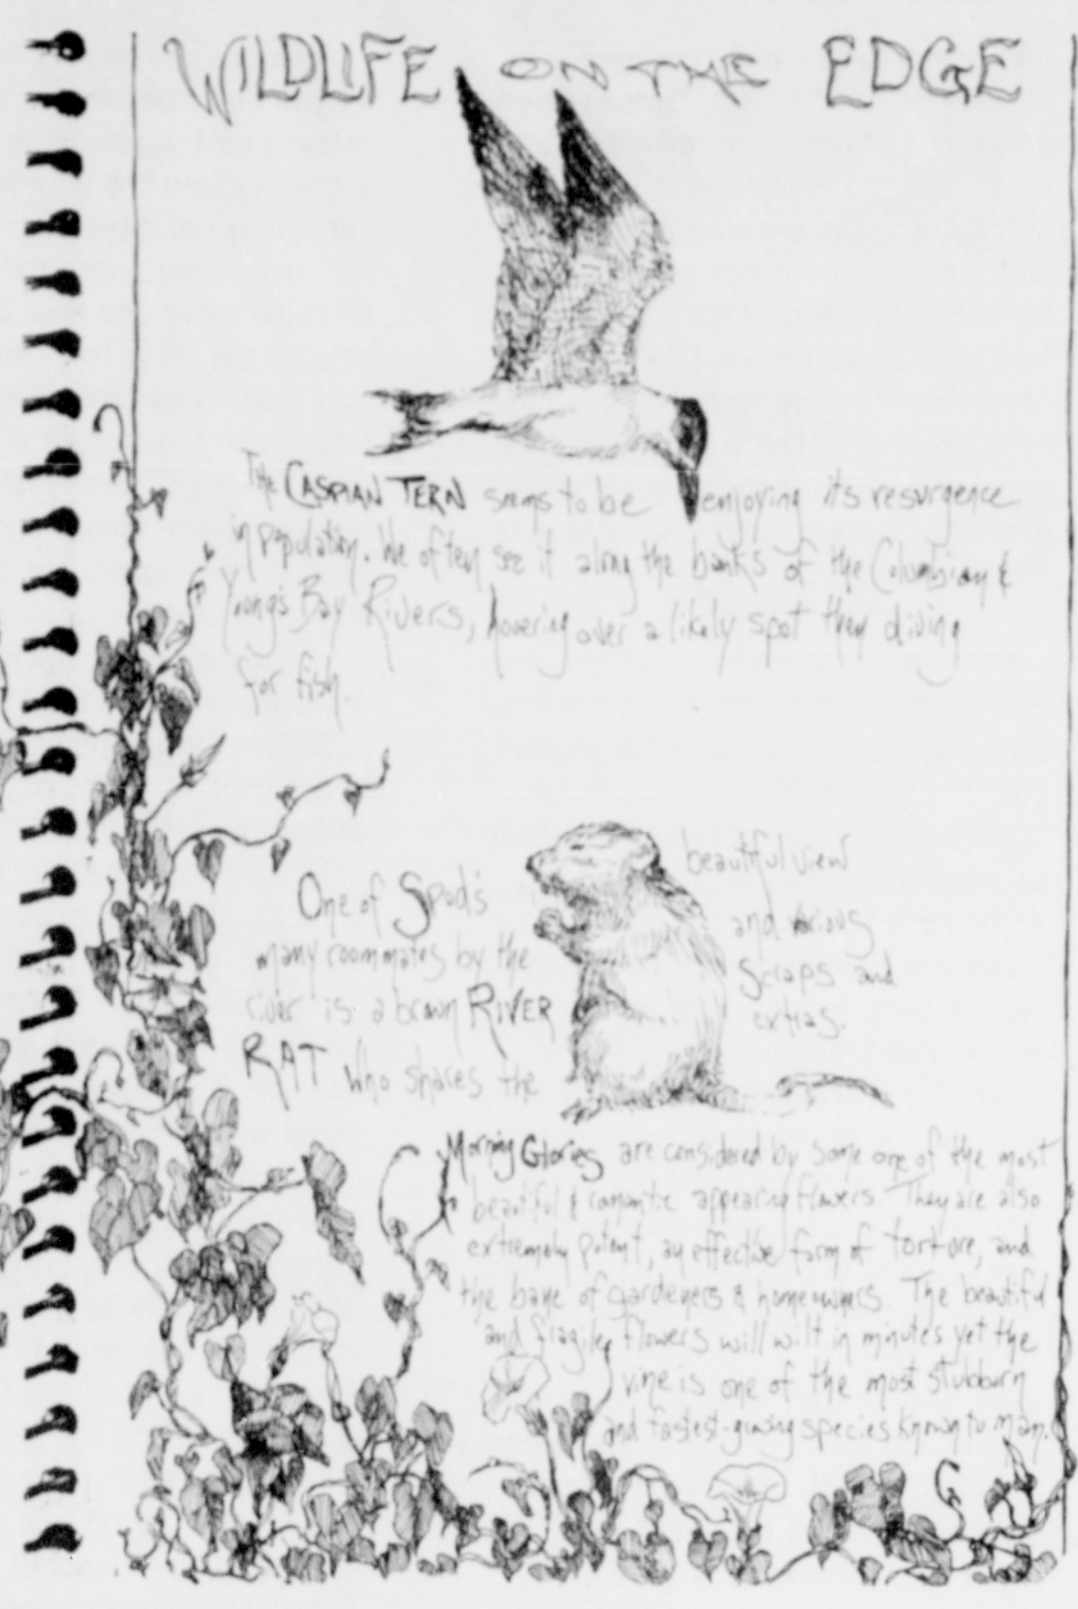 WILDLIFE ON THE EDGE
The CASPIAN TERN seems to be enjoying its resurgence
in population. We often see it along the banks of the Columbian &
Young's Bay Rivers, hovering over a likely spot then diving
for fish.
One of Spud's
many roommates by the
river is a brown RIVER
RAT who shares the
beautiful view
and various
scraps and
extras.
Morning Glories are considered by some one of the most
beautiful & romantic appearing flowers. They are also
extremely potent, an effective form of torture, and
the bane of gardeners & homeowners. The beautiful
and fragile flowers will wilt in minutes yet the
vine is one of the most stubburn
and fastest-growing species known to man.